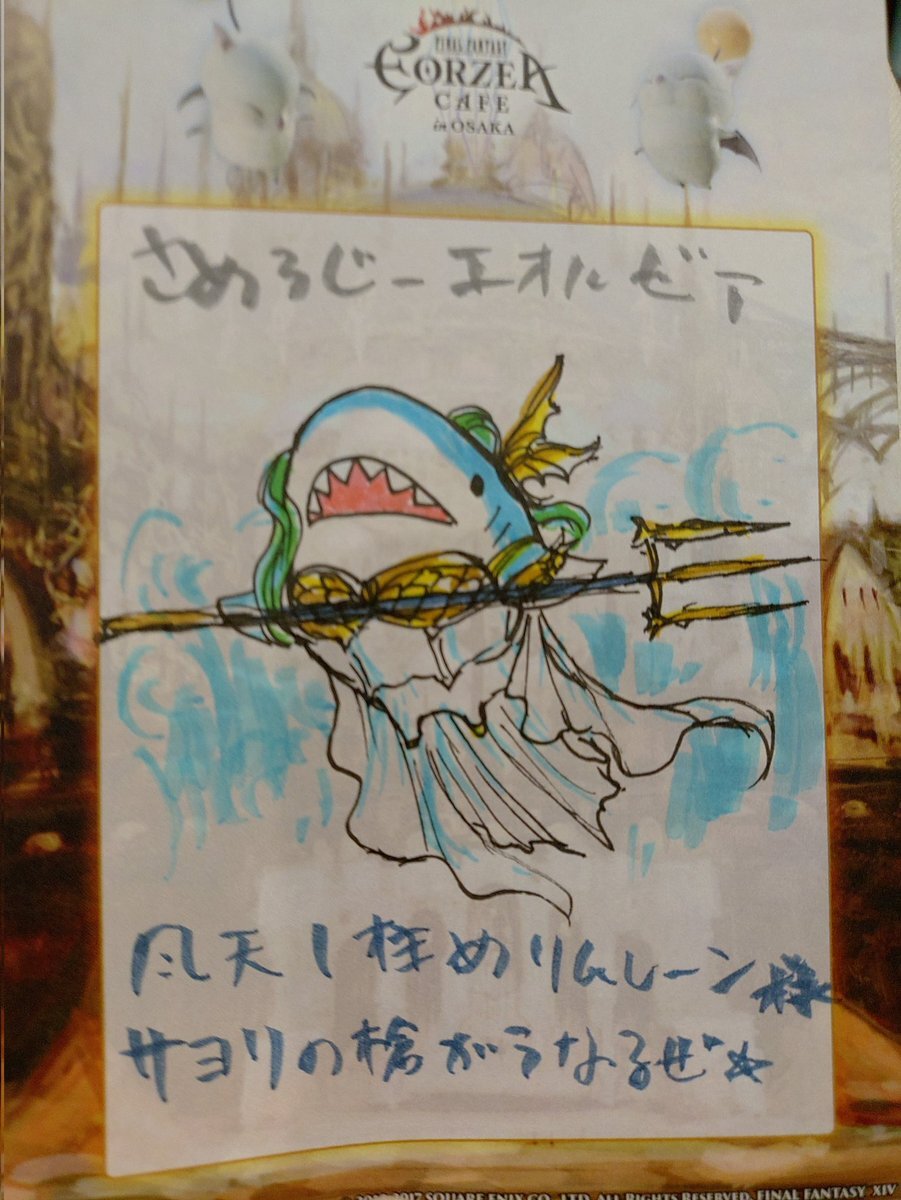 FINAL FANTASY
EORZEA
CAFE
in OSAKA
さめろじーエオルゼア
風天1柱めリムレーン様
サヨリの槍がうなるぜ☆
2017 SQUARE ENIX CO., LTD. ALL RIGHTS RESERVED. FINAL FANTASY, XIV